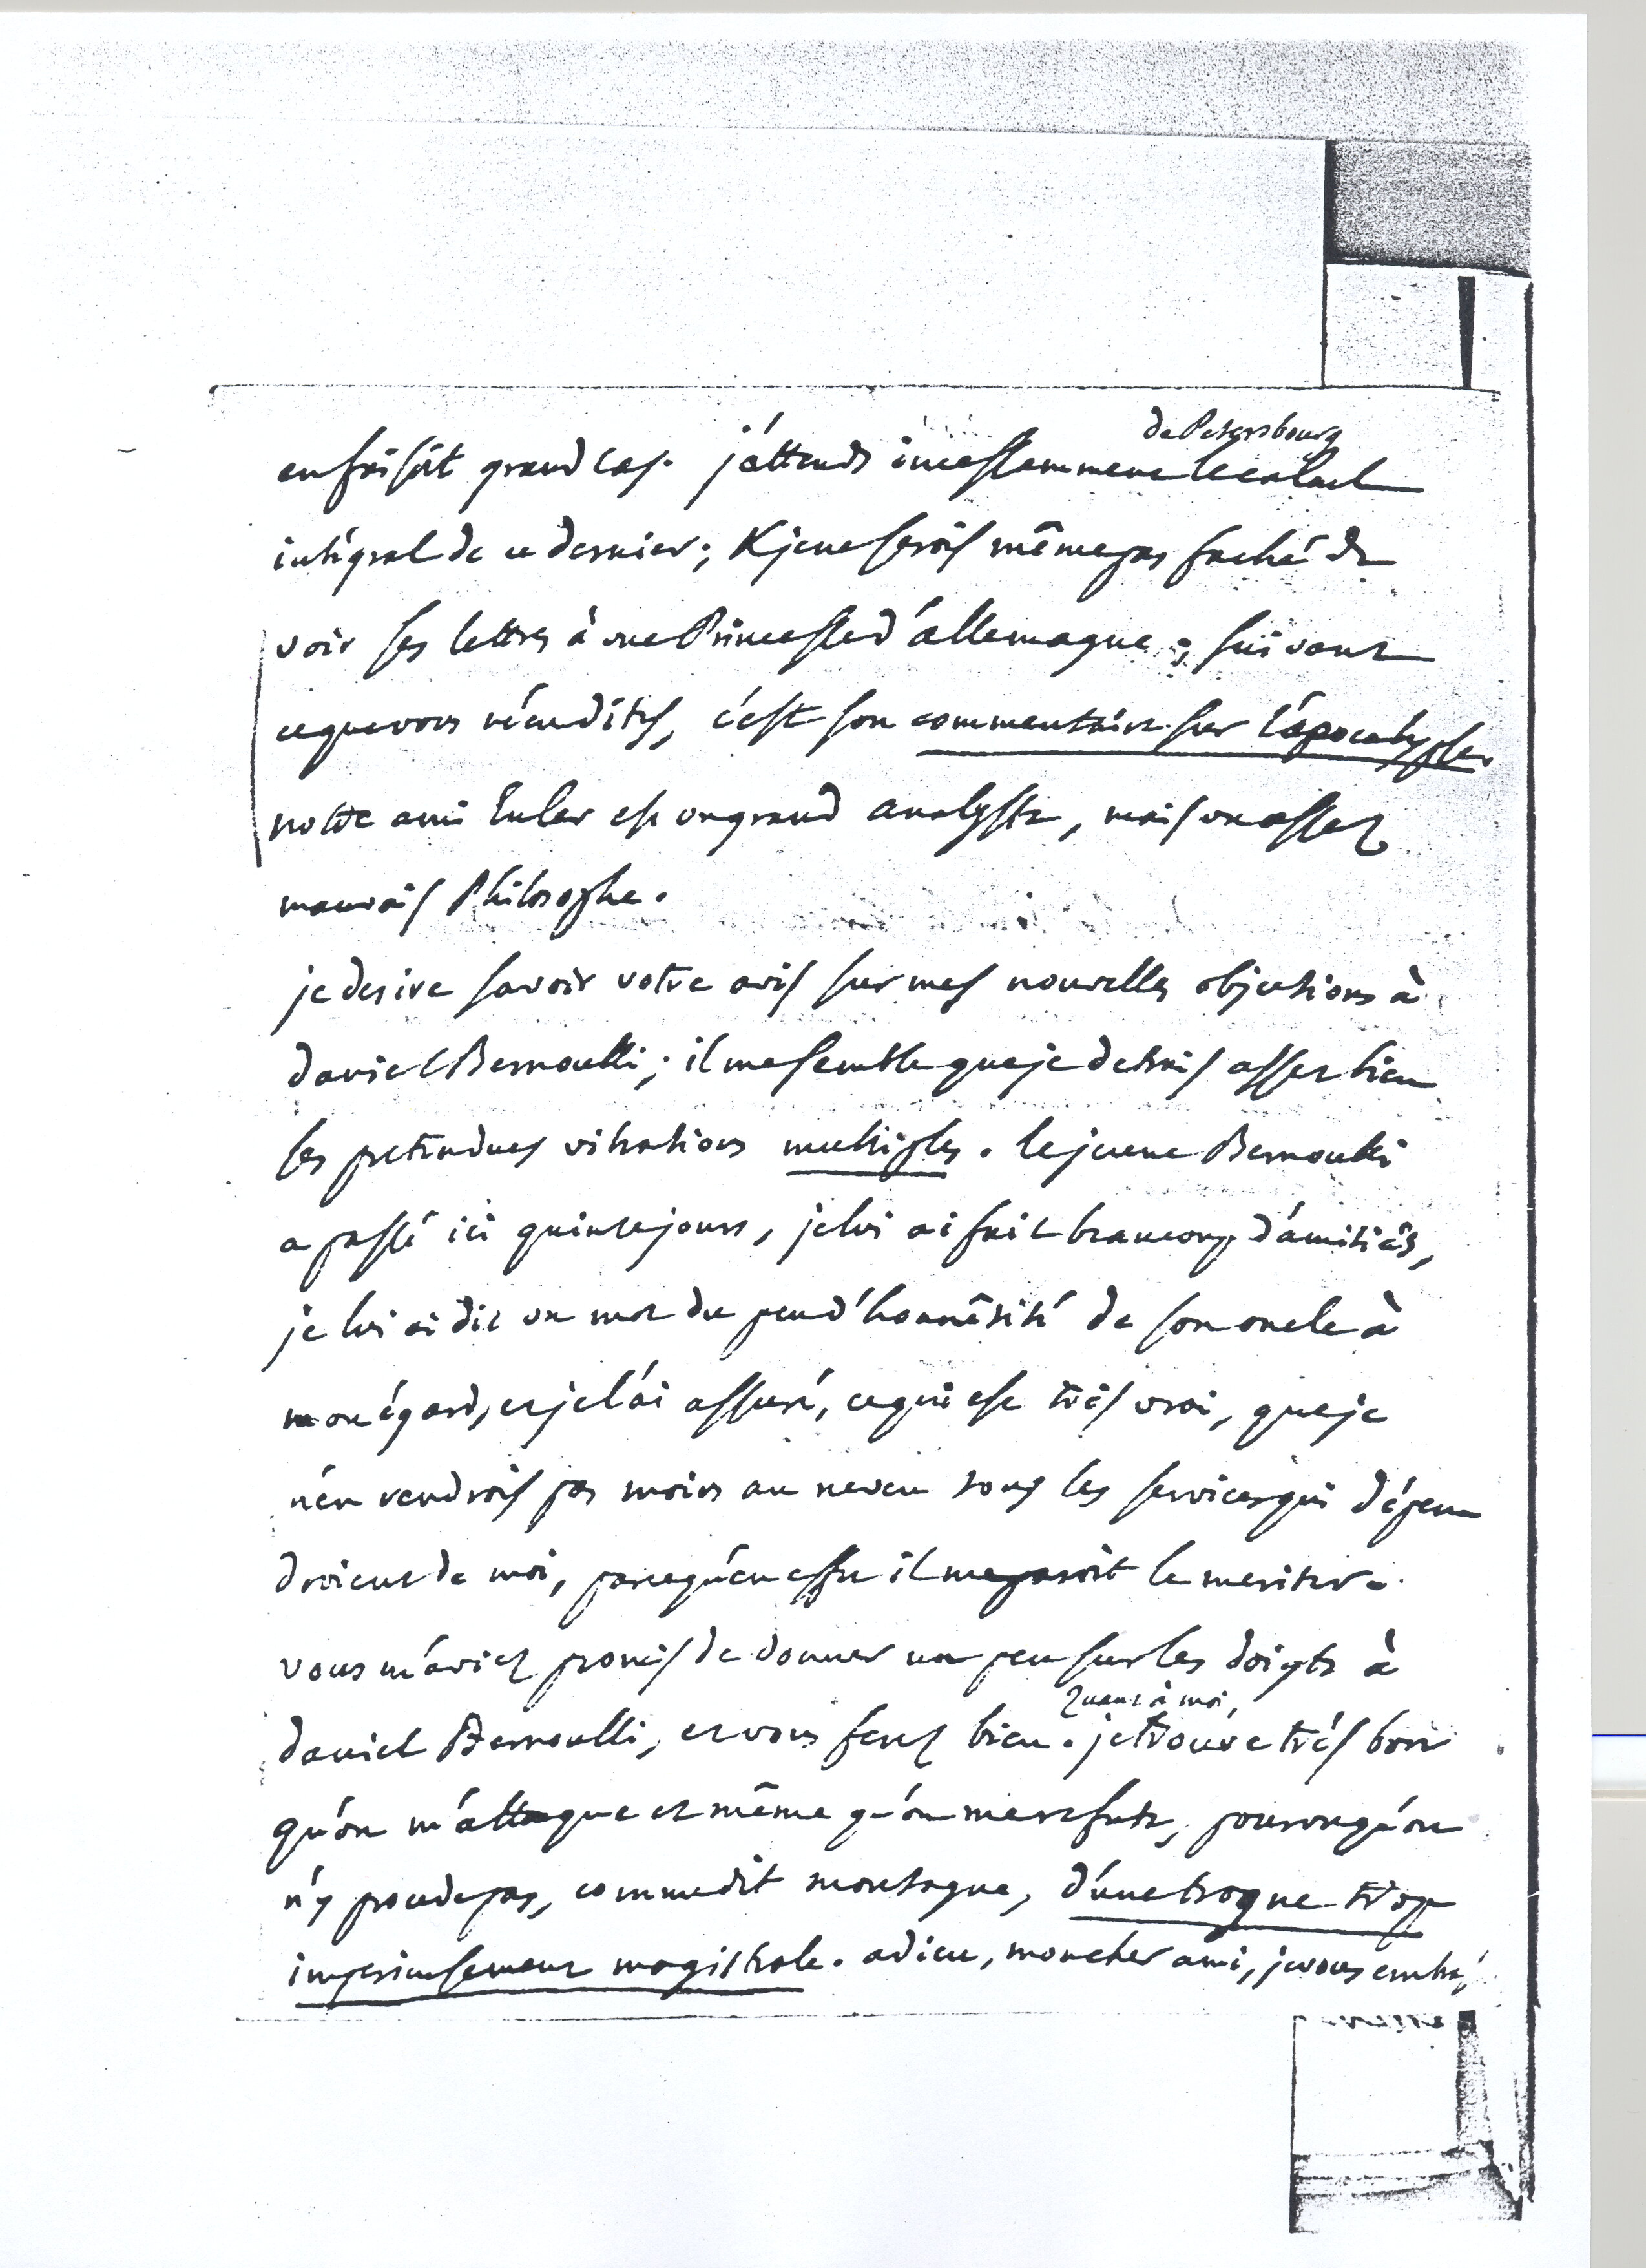 en faisoit grand cas. j'attends incessamment de Petersbourg le calcul
intégral de ce dernier; & je ne serois même pas faché de
voir ses lettres à une Princesse d'allemagne; suivant
ce que vous m'en dites, c'est son commentaire sur l'apocalypse.
notre ami Euler est un grand analyste, mais un assez
mauvais Philosophe.
je desire savoir votre avis sur mes nouvelles objections à
daniel Bernoulli; il me semble que je detruis assez bien
ses pretendues vibrations multiples. le jeune Bernoulli
a passé ici quinze jours, je lui ai fait beaucoup d'amitiés,
je lui ai dit un mot du peu d'honnêteté de son oncle à
mon égard, et je l'ai assuré, ce qui est très vrai, que je
n'en rendrois pas moins au neveu tous les services qui dépen
droient de moi, parcequ'en effet il me paroit le meriter.
vous m'aviez promis de donner un peu sur les doigts à
daniel Bernoulli, et vous ferez bien. Quant à moi, je trouve très bon
qu'on m'attaque et même qu'on me refute, pourvu qu'on
n'y procede pas, comme dit montagne, d'une trogne trop
imperieusement magistrale. adieu, mon cher ami, je vous embra